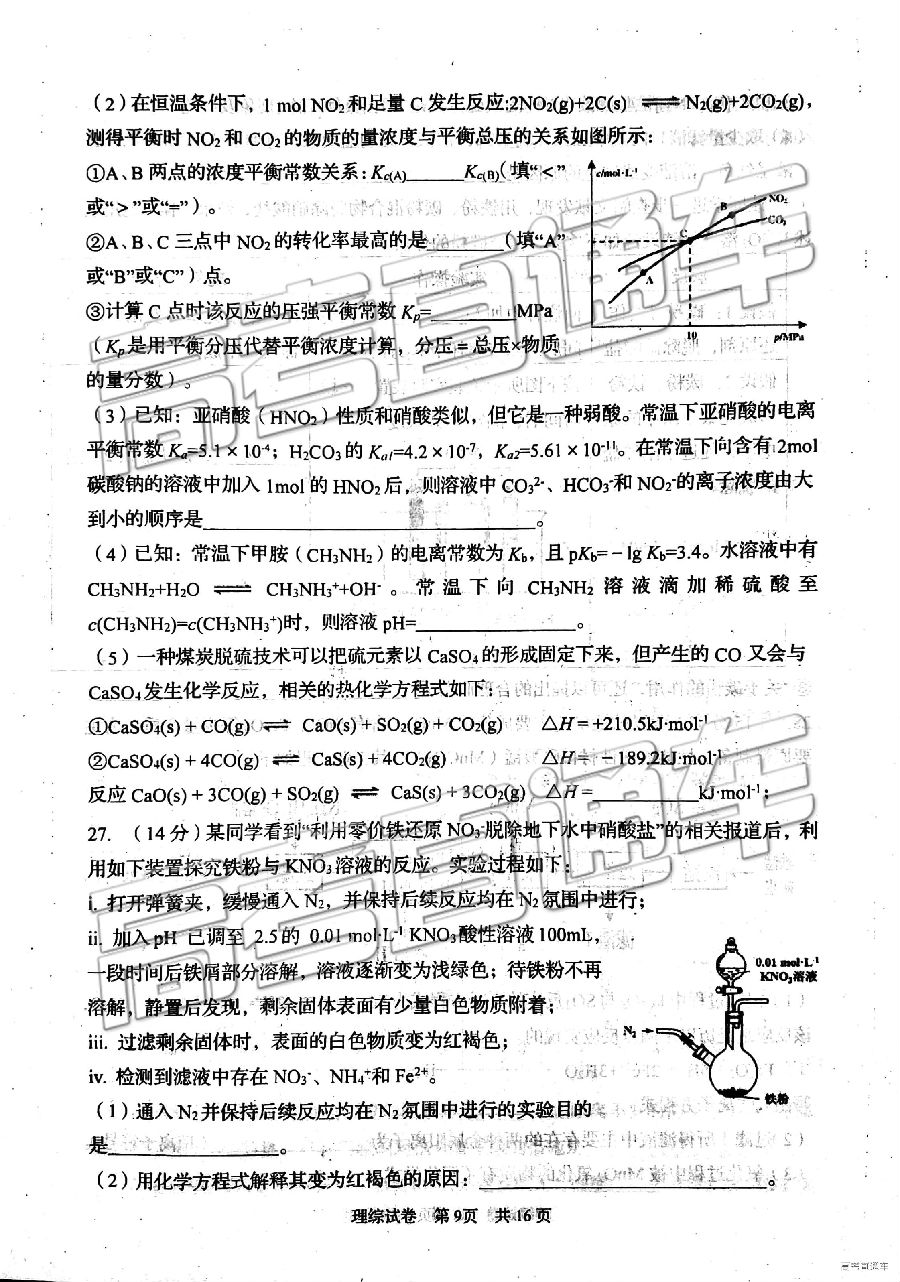 （2）在恒温条件下，1 mol NO₂和足量 C 发生反应:2NO₂(g)+2C(s) ⇌ N₂(g)+2CO₂(g)，
测得平衡时 NO₂和 CO₂的物质的量浓度与平衡总压的关系如图所示：
①A、B 两点的浓度平衡常数关系：Kc(A)______Kc(B)(填“<”
或“>”或“=”）。
②A、B、C 三点中 NO₂的转化率最高的是______（填“A”
或“B”或“C”）点。
③计算 C 点时该反应的压强平衡常数 Kp=______MPa
（Kp是用平衡分压代替平衡浓度计算，分压＝总压×物质
的量分数）。
c/mol·L⁻¹
NO₂
CO₂
B
C
A
10
p/MPa
（3）已知：亚硝酸（HNO₂）性质和硝酸类似，但它是一种弱酸。常温下亚硝酸的电离
平衡常数 Ka=5.1×10⁻⁴；H₂CO₃的 Ka1=4.2×10⁻⁷，Ka2=5.61×10⁻¹¹。在常温下向含有 2mol
碳酸钠的溶液中加入 1mol 的 HNO₂后，则溶液中 CO₃²⁻、HCO₃⁻和 NO₂⁻的离子浓度由大
到小的顺序是______________________。
（4）已知：常温下甲胺（CH₃NH₂）的电离常数为 Kb，且 pKb=－lg Kb=3.4。水溶液中有
CH₃NH₂+H₂O ⇌ CH₃NH₃⁺+OH⁻。常温下向 CH₃NH₂ 溶液滴加稀硫酸至
c(CH₃NH₂)=c(CH₃NH₃⁺)时，则溶液 pH=____________。
（5）一种煤炭脱硫技术可以把硫元素以 CaSO₄的形成固定下来，但产生的 CO 又会与
CaSO₄发生化学反应，相关的热化学方程式如下：
①CaSO₄(s)＋CO(g) ⇌ CaO(s)＋SO₂(g)＋CO₂(g) △H＝+210.5kJ·mol⁻¹
②CaSO₄(s)＋4CO(g) ⇌ CaS(s)＋4CO₂(g) △H＝－189.2kJ·mol⁻¹
反应 CaO(s)＋3CO(g)＋SO₂(g) ⇌ CaS(s)＋3CO₂(g) △H＝________kJ·mol⁻¹；
27.（14 分）某同学看到“利用零价铁还原 NO₃⁻脱除地下水中硝酸盐”的相关报道后，利
用如下装置探究铁粉与 KNO₃溶液的反应。实验过程如下：
i. 打开弹簧夹，缓慢通入 N₂，并保持后续反应均在 N₂氛围中进行；
ii. 加入 pH 已调至 2.5 的 0.01 mol·L⁻¹ KNO₃酸性溶液100mL，
一段时间后铁屑部分溶解，溶液逐渐变为浅绿色；待铁粉不再
溶解，静置后发现，剩余固体表面有少量白色物质附着；
iii. 过滤剩余固体时，表面的白色物质变为红褐色；
iv. 检测到滤液中存在 NO₃⁻、NH₄⁺和 Fe²⁺。
0.01 mol·L⁻¹
KNO₃溶液
N₂
铁粉
（1）通入 N₂并保持后续反应均在 N₂氛围中进行的实验目的
是____________。
（2）用化学方程式解释其变为红褐色的原因：____________________。
理综试卷 第 9页 共 16 页
高考直通车
高考直通车
高考直通车